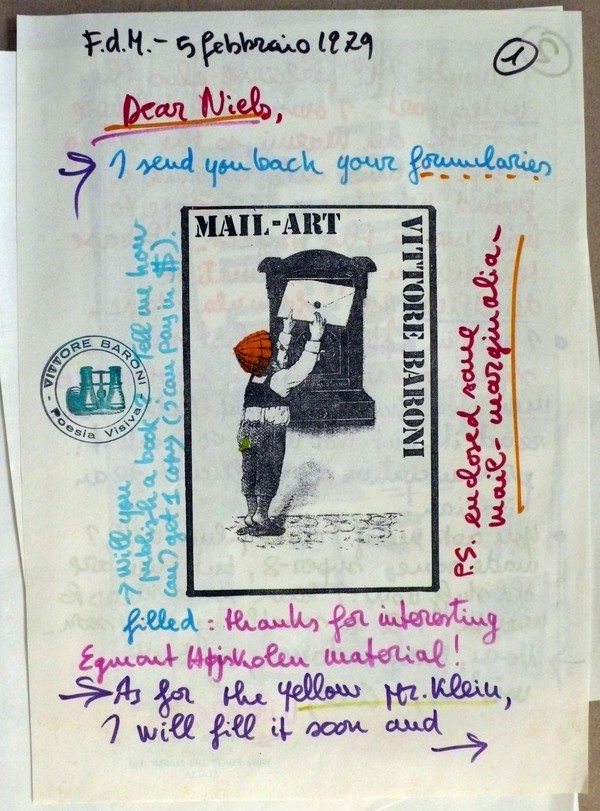 F.d.M. - 5 febbraio 1979
1
Dear Niels,
→ I send you back your formularies
MAIL-ART
VITTORE BARONI
VITTORE BARONI
Poesia Visiva
→ Will you
publish a book? Tell me how
can I get 1 copy (I can pay in $).
P.S. enclosed some
mail-marginalia-
filled: thanks for interesting
Egmont Højskolen material!
→ As for the yellow Mr. Klein,
I will fill it soon and
→